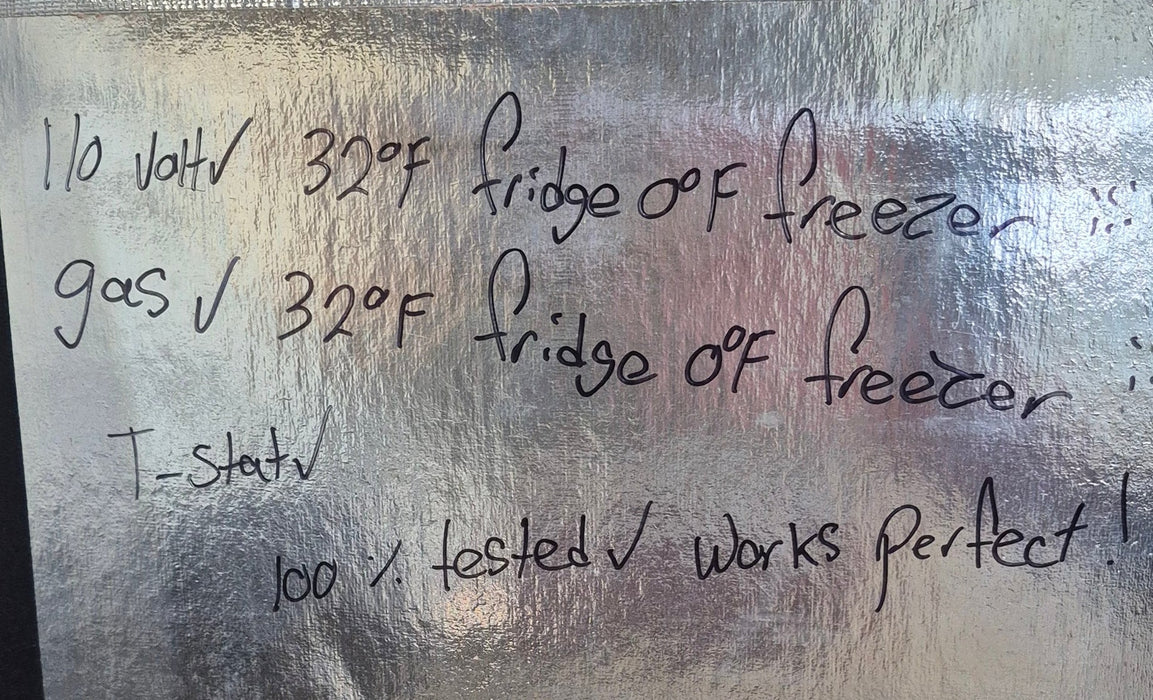 110 volt✓ 32°F fridge 0°F freezer
gas ✓ 32°F fridge 0°F freezer
T-stat✓
100 % tested ✓ works perfect!